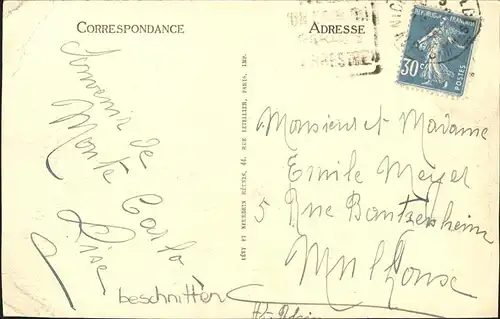 CORRESPONDANCE
Souvenir de
Monte Carlo
Lise
beschnitten
LÉVY ET NEURDEIN RÉUNIS, 44, RUE LETELLIER, PARIS, IMP.
ADRESSE
NIC
RÉPUBLIQUE FRANÇAISE
30c
POSTES
Monsieur et Madame
Emile Meyer
5 Rue Bantzenheim
Mulhouse
Ht. Rhin